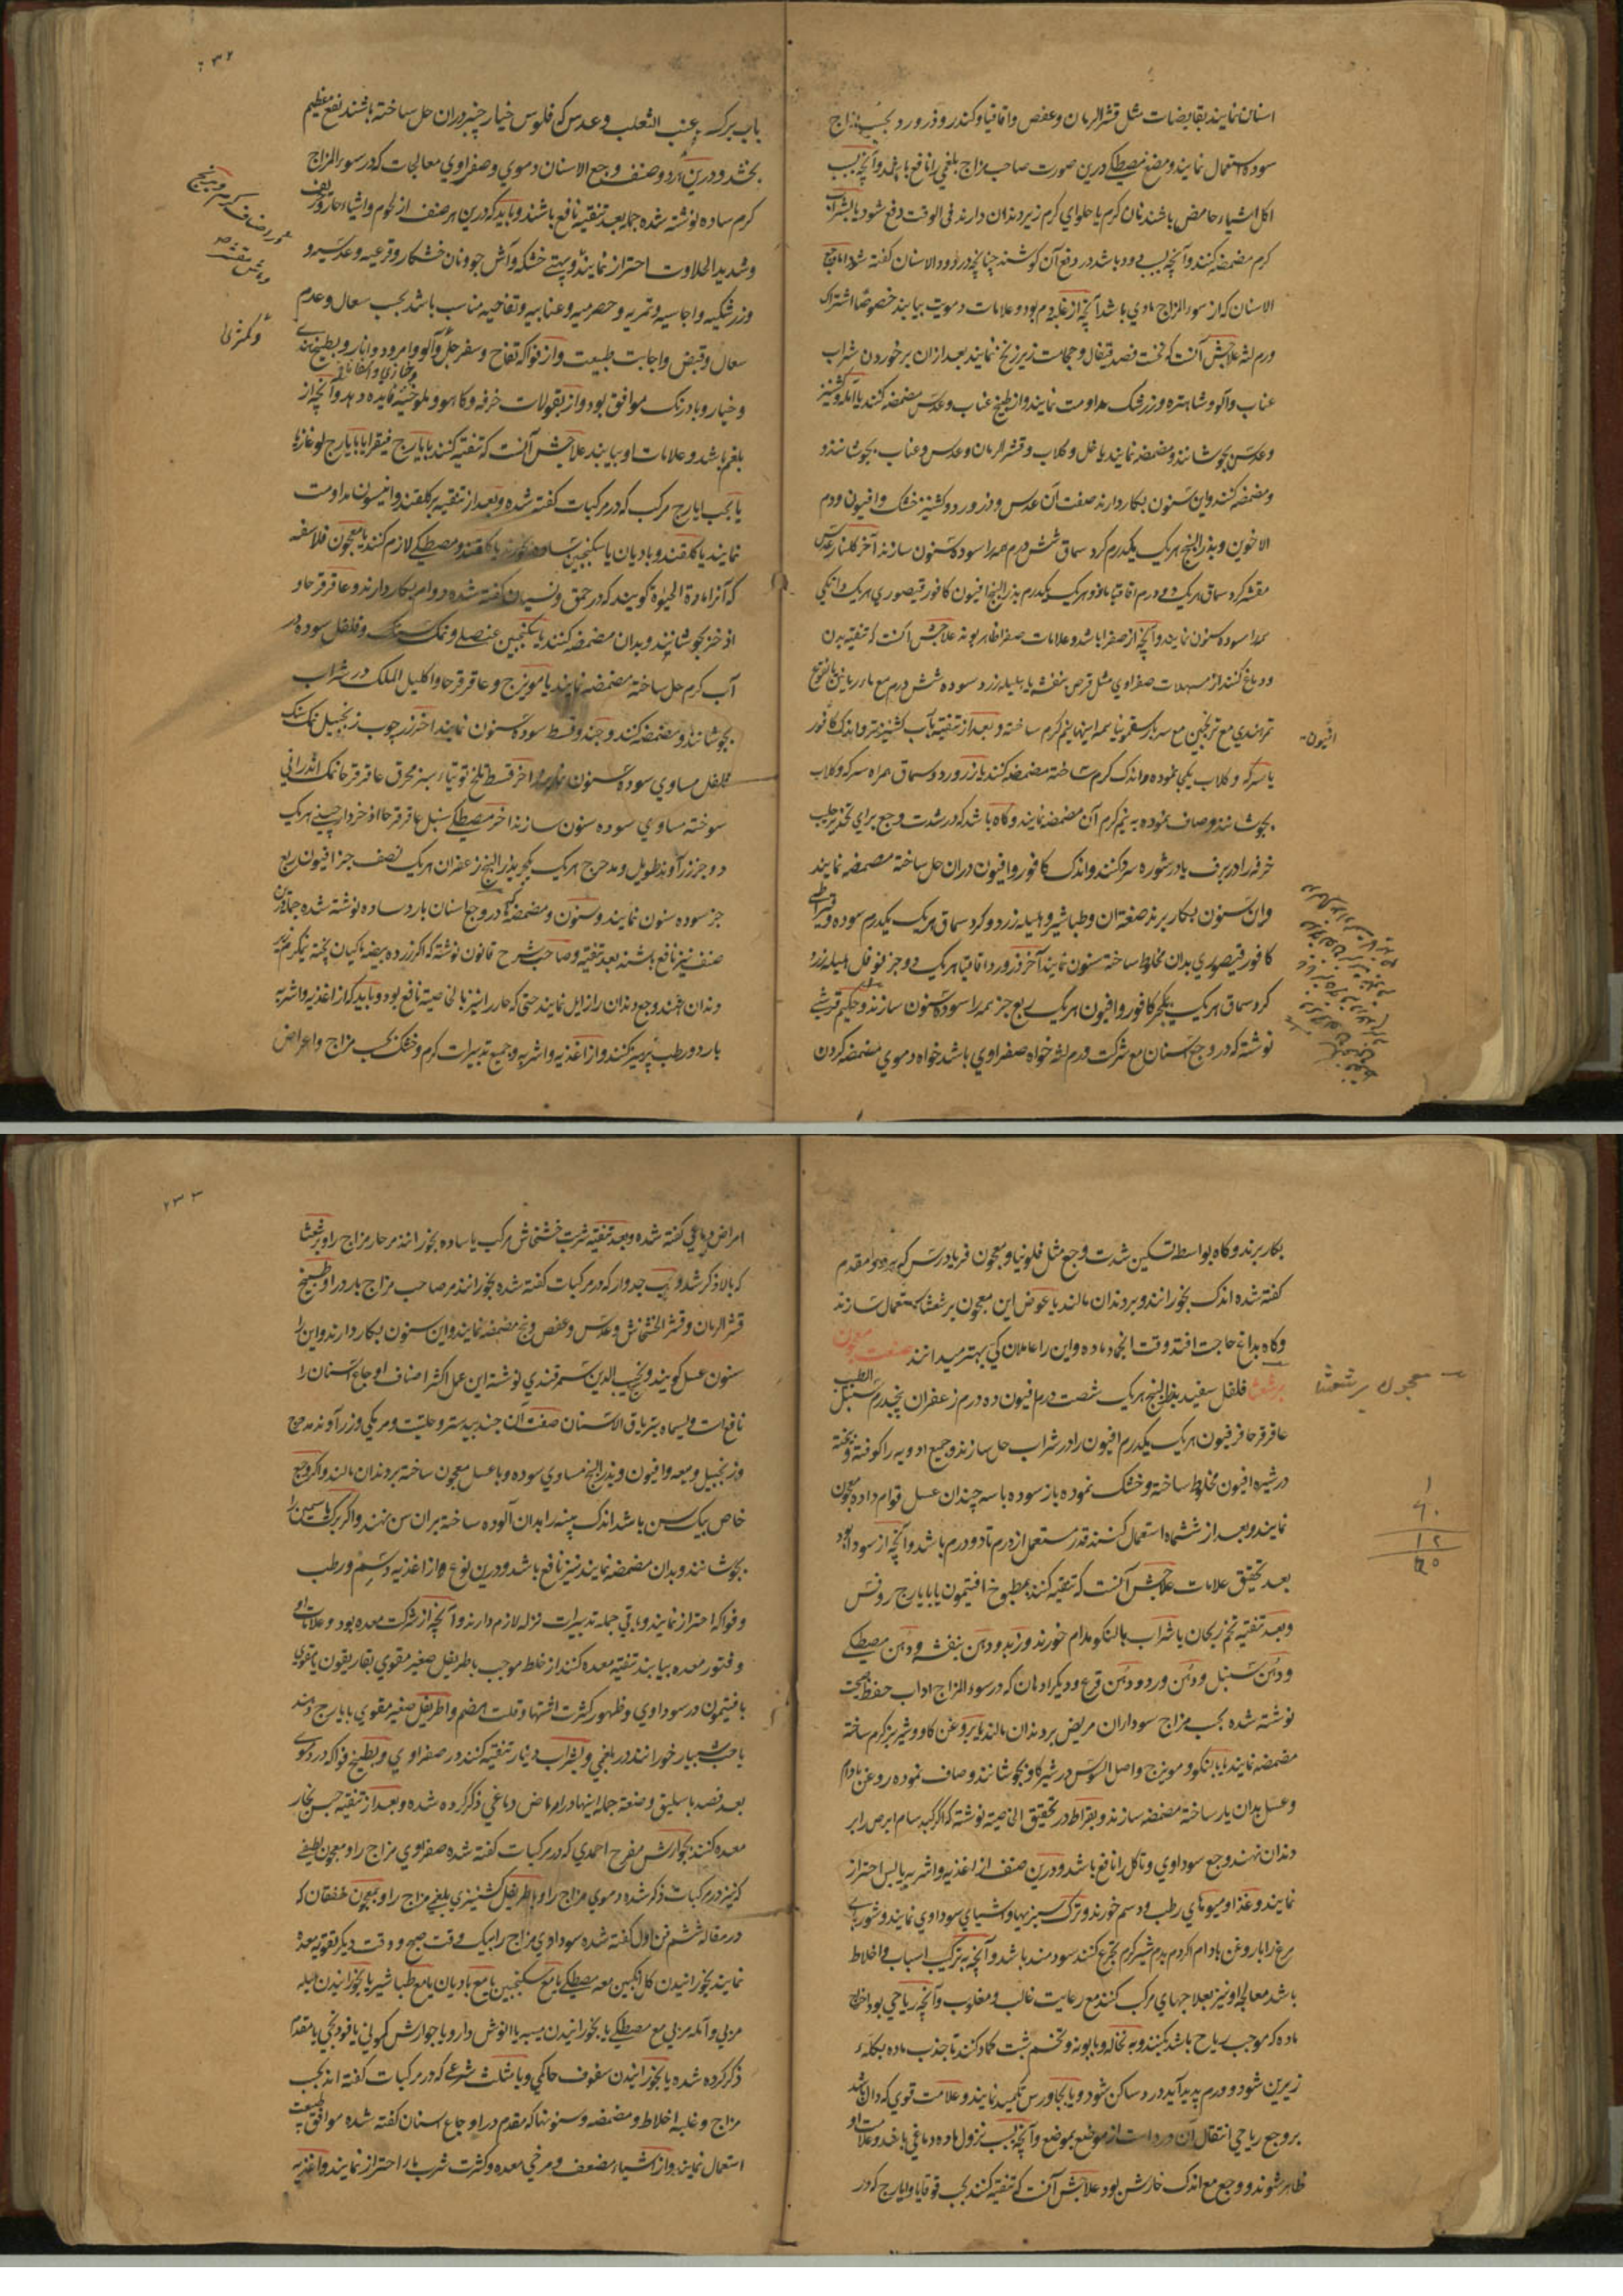 اسنان نمایند بقابضات مثل قشر الرمان و عفص و اقاقیا و کندر و ذرور ورد بحسب مزاج
سوده استعمال نمایند و مضغ مصطکی درین صورت صاحب مزاج بلغمی را نافع باشد و آنچه بسبب
اکل اشیاء حامض باشد نان کرم یا حلوای کرم زیر دندان دارند فی الوقت دفع شود یا بشراب
کرم مضمضه کنند و آنچه بسبب دود باشد در دفع آن کوشند چنانچه در دود الاسنان کفته شد اما وجع
الاسنان که از سوء المزاج مادی باشد آنچه از غلبه دم بود و علامات دمویت بیابند خصوصا اشتراک
ورم لثه علاجش آنست که نخست فصد قیفال و حجامت زیر زنخ نمایند بعد ازان بر خوردن شراب
عناب و آلو و شاهتره و زرشک مداومت نمایند و از طبیخ عناب و عدس مضمضه کنند یا آمله و کشنیز
و عدس بجوشانند و مضمضه نمایند یا خل و کلاب و قشر الرمان و عدس و عناب بجوشانند و
و مضمضه کنند و این سنون بکار دارند صفت آن عدس و زرورد و کشنیز خشک و افیون و دم
الاخوین و بذر البنج هر یک یکدرم کرد سماق شش درم همه را سوده سنون سازند آخر کلنار عدس
مقشر کرد سماق هر یک دو درم اقاقیا مازو هر یک یکدرم بذر البنج افیون کافور قیصوری هر یک دانکی
همه را سوده سنون نمایند و آنچه از صفرا باشد و علامات صفرا ظاهر بود علاجش آنست که تنقیه بدن
و دماغ کنند از مسهلات صفراوی مثل قرص بنفشه یا هلیله زرد سوده شش درم مع ماء رمانین یا نقوع
تمر هندی مع ترنجبین مع سرباز سقمونیا همه اینها نیم کرم ساخته و بعد از تنقیه بآب کشنیز تر و اندک کافور
یا سرکه و کلاب یکجا نموده و اندک کرم ساخته مضمضه کنند یا زرورد و سماق همراه سرکه و کلاب
بجوشانند و صاف نموده به نیم کرم آن مضمضه نمایند و کاه باشد که در شدت وجع برای تخدیر حلیب
خرفه را در برف یا در شوره سرد کنند و اندک کافور و افیون دران حل ساخته مضمضه نمایند
و این سنون بکار برند صفة آن طباشیر و هلیله زرد و کرد سماق هر یک یکدرم سوده و قیراطی
کافور قیصوری بدان مخلوط ساخته سنون نمایند آخر زرورد اقاقیا هر یک دو جز فوفل هلیله زرد
کرد سماق هر یک یکجز کافور و افیون هر یک ربع جز همه را سوده سنون سازند و حکیم قرشی
نوشته که در وجع اسنان مع شرکت ورم لثه خواه صفراوی باشد خواه دموی مضمضه کردن
افیون
بآب برک عنب الثعلب و عدس که فلوس خیار چنبر دران حل ساخته باشند نفع عظیم
بخشد و درین هر دو صنف وجع الاسنان دموی و صفراوی معالجات که در سوء المزاج
کرم ساده نوشته شده همه بعد تنقیه نافع باشند و باید که درین هر صنف از لحوم و اشیاء حار و حریف
و شدید الحلاوت احتراز نمایند و بپتی خشکه و آش جو و نان خشکار و قرعیه و عدسیه و
و زرشکیه و اجاسیه و تمریه و حصرمیه و عنابیه و تفاحیه مناسب باشد بحسب سعال و عدم
سعال و قبض و اجابت طبیعت و از فواکه تفاح و سفرجل و آلو و امرود و انار و بطیخ هندی
و خیار و بادرنک موافق بود و از بقولات خرفه و کاهو و ملوخیه فایده دهد و آنچه از
بلغم باشد و علامات او بیابند علاجش آنست که تنقیه کنند بایارج فیقرا یا بایارج لوغازیا
یا بحب ایارج مرکب که در مرکبات کفته شده و بعد از تنقیه بر کلقند و انیسون مداومت
نمایند یا کلقند و بادیان یا سکنجبین ساده خورند یا کلقند و مصطکی لازم کنند یا معجون فلاسفه
که آنرا مادة الحیوة کویند که در حمق و نسیان کفته شده دوام بکار دارند و عاقرقرحا و
اذخر بجوشانند و بدان مضمضه کنند یا سکنجبین عنصلی و نمک سنک و فلفل سوده در
آب کرم حل ساخته مضمضه نمایند یا مویزج و عاقرقرحا و اکلیل الملک در شراب
بجوشانند و مضمضه کنند و جند و قسط سوده سنون نمایند اخر زرچوب زنجبیل نمک سنک
فلفل مساوی سوده سنون نمایند اخر قسط تلخ توتیاء سبز محرق عاقرقرحا نمک اندرانی
سوخته مساوی سوده سنون سازند اخر مصطکی سنبل عاقرقرحا اذخر دارچینی هر یک
دو جز زراوند طویل و مدحرج هر یک یکجز بذر البنج زعفران هر یک نصف جز افیون ربع
جز سوده سنون نمایند و سنون و مضمضه که در وجع اسنان بارد ساده نوشته شده جمله درین
صنف نیز نافع باشند بعد تنقیه و صاحب شرح قانون نوشته که اکر زرده بیضه ماکیان پخته نیمکرم بر
دندان نهند وجع دندان را زایل نمایند حتی که حار را نیز بالخاصیة نافع بود و باید که از اغذیه و اشربه
بارد و رطب پرهیز کنند و از اغذیه و اشربه و جمیع تدبیرات کرم و خشک بحسب مزاج و اعراض
بکار برند و کاه بواسطه تسکین شدت وجع مثل فلونیا و معجون فریادرس که
کفته شده اندک بخورانند و بر دندان مالند یا عوض این معجون برشعشا استعمال سازند
و کاه بداغ حاجت افتد وقت انجماد ماده و این را عاملان کی بهتر میدانند صفت معجون
برشعشا فلفل سفید بذر البنج هر یک شصت درم افیون ده درم زعفران پنجدرم سنبل الطیب
عاقرقرحا فرفیون هر یک یکدرم افیون را در شراب حل سازند و جمیع ادویه را کوفته و بیخته
در شیره افیون مخلوط ساخته و خشک نموده باز سوده با سه چندان عسل قوام داده معجون
نمایند و بعد از ششماه استعمال کنند قدر مستعمل از درم تا دو درم باشد و آنچه از سودا بود
بعد تحقیق علامات علاجش آنست که تنقیه کنند بمطبوخ افتیمون یا بایارج روفس
و بعد تنقیه تخم ریحان با شراب بالنکو مدام خورند و زبد و دهن بنفشه و دهن مصطکی
و دهن سنبل و دهن ورد و دهن قرع و دیکر ادهان که در سوء المزاج اداب حفظ صحت
نوشته شده بحسب مزاج سوداران مریض بر دندان مالند یا بروغن کاو و شیر بز کرم ساخته
مضمضه نمایند یا بالنکو و مویزج و اصل السوس در شیر کاو بجوشانند و صاف نموده روغن بادام
و عسل بدان یار ساخته مضمضه سازند و بقراط در تحقیق الخاصیة نوشته که اکر کبد سام ابرص را بر
دندان نهند وجع سوداوی و تاکل را نافع باشد و درین صنف از اغذیه و اشربه یابس احتراز
نمایند و غذا و میوهای رطب و دسم خورند و ترک سبزیها و اشیای سوداوی نمایند و شوربای
مرغ را با روغن بادام اکر دم بدم شیر کرم تجرع کنند سودمند باشد و آنچه بترکیب اسباب و اخلاط
باشد معالجه او نیز بعلاجهای مرکب کنند مع رعایت غالب و مغلوب و آنچه ریاحی بود اخراج
ماده که موجب ریاح باشد بکنند و به نخاله و بابونه و تخم شبت کماد کنند تا جذب ماده بکله
زیرین شود و ورم پدید آید درد ساکن شود و یا بجاورس تکمید نمایند و علامت قوی که دال باشد
بر وجع ریاحی انتقال آن درد است از موضع بموضع و آنچه بسبب نزول ماده دماغی باشد و علامات او
ظاهر شوند و وجع مع اندک خارش بود علاجش آنست که تنقیه کنند بحب قوقایا و ایارج که در
معجون برشعشا
امراض دماغی کفته شده و بعد تنقیه شربت خشخاش مرکب یا ساده بخورانند مر حار مزاج را و برشعشا
که بالا ذکر شد و حب جدوار که در مرکبات کفته شده بخورانند مر صاحب مزاج بارد را و بطبیخ
قشر الرمان و قشر الخشخاش و عدس و عفص و بنج مضمضه نمایند و این سنون بکار دارند و این را
سنون عسل کویند و نجیب الدین سمرقندی نوشته این عمل اکثر اصناف اوجاع اسنان را
نافع است و یسماه بتریاق الاسنان صفت آن جندبیدستر و حلتیت و مر مکی و زراوند مدحرج
و زنجبیل و میعه و افیون و بذر البنج مساوی سوده و با عسل معجون ساخته بر دندان مالند و اکر وجع
خاص بیک سن باشد اندک پنبه را بدان آلوده ساخته بران سن نهند و اکر برک یاسمین را
بجوشانند و بدان مضمضه نمایند نیز نافع باشد و درین نوع از اغذیه دسم و رطب
و فواکه احتراز نمایند و باقی جمله تدبیرات نزله لازم دارند و آنچه از شرکت معده بود و علامات او
و فتور معده بیابند تنقیه معده کنند از خلط موجب باطریفل صغیر مقوی بغاریقون یا مقوی
بافتیمون در سوداوی و ظهور کثرت اشتها و قلت هضم و اطریفل صغیر مقوی بایارج دهند
یا حب شبیار خورانند در بلغمی و بشراب دینار تنقیه کنند در صفراوی و بطبیخ فواکه در دموی
بعد فصد باسلیق و صنعة جمله اینها در امراض دماغی ذکر کرده شده و بعد از تنقیه حبس بخار
معده کنند بجوارش مفرح احمدی که در مرکبات کفته شده صفراوی مزاج را و معجون لطیفی
که نیز در مرکبات ذکر شده دموی مزاج را و باطریفل کشنیزی بلغمی مزاج را و بمعجون خفقان که
در مقاله ششم فن اول کفته شده سوداوی مزاج را بیک وقت صبح و وقت دیکر تقویه معده
نمایند بخورانیدن کل انکبین معه مصطکی یا مع سکنجبین یا مع بادیان یا مع طباشیر یا بخورانیدن هلیله
مربی و آمله مربی مع مصطکی یا بخورانیدن میبه یا انوش دارو یا جوارش کمونی یا فودنجی یا مقدم
ذکر کرده شده یا بخورانیدن سفوف حاکمی و یا مثلث شرعی که در مرکبات کفته اند بحسب
مزاج و غلبه اخلاط و مضمضه و سنونها که مقدم در اوجاع اسنان کفته شده موافق طبیعت
استعمال نمایند و از اشیاء مضعف و مرخی معده و کثرت شرب ماء احتراز نمایند و اغذیه